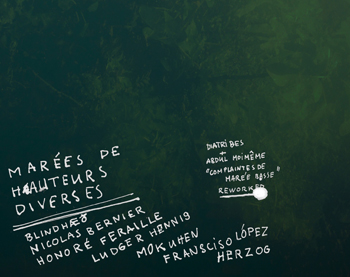 MARÉES DE
HAUTEURS
DIVERSES
BLINDHÆD
NICOLAS BERNIER
HONORÉ FERAILLE
LUDGER HENNIG
MOKUHEN
FRANSCISO LÓPEZ
HERZOG
DIATRIBES
+
ABDUL MOIMÊME
"COMPLAINTES DE
MARÉE BASSE"
REWORKED